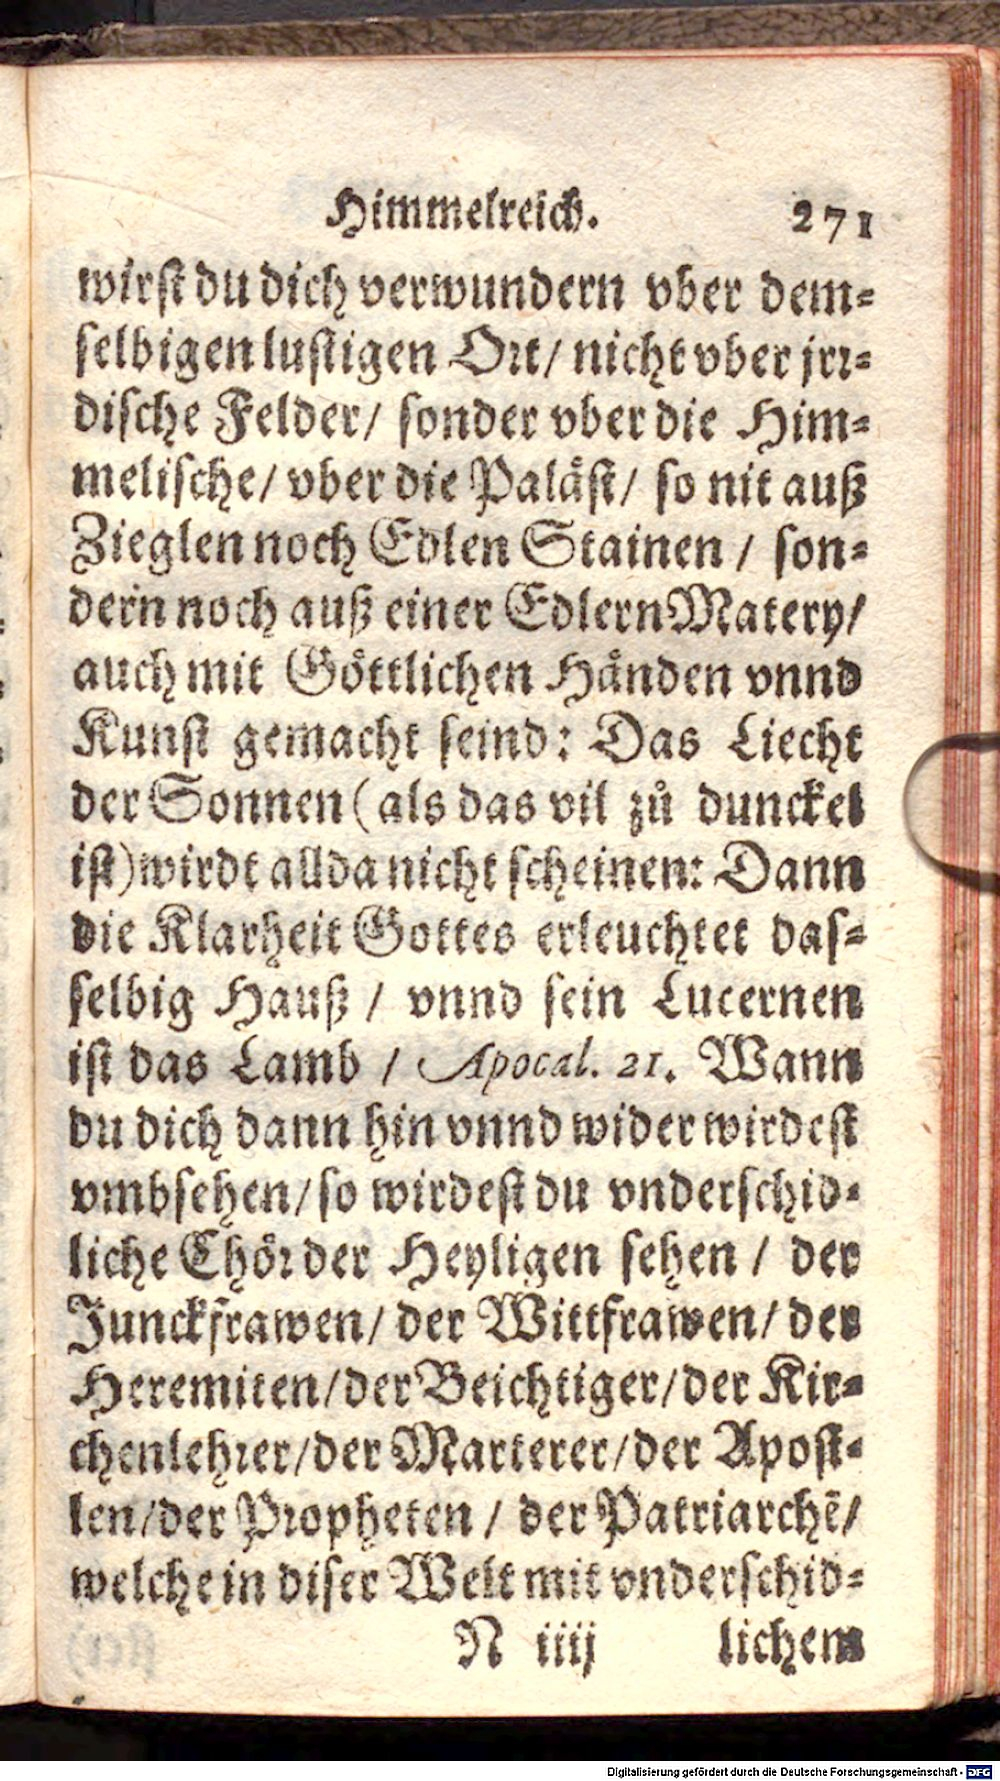 Himmelreich. 271
wirst du dich verwundern vber dem-
selbigen lustigen Ort/ nicht vber jrr-
dische Felder/ sonder vber die Him-
melische/ vber die Paläst/ so nit auß
Zieglen noch Edlen Stainen / son-
dern noch auß einer Edlern Matery/
auch mit Göttlichen Händen vnnd
Kunst gemacht seind: Das Liecht
der Sonnen (als das vil zů dunckel
ist) wirdt allda nicht scheinen: Dann
die Klarheit Gottes erleuchtet das-
selbig Hauß / vnnd sein Lucernen
ist das Lamb / Apocal. 21. Wann
du dich dann hin vnnd wider wirdest
vmbsehen/ so wirdest du vnderschid-
liche Chör der Heyligen sehen / der
Junckfrawen/ der Wittfrawen/ der
Heremiten/ der Beichtiger/ der Kir-
chenlehrer/ der Marterer/ der Apost-
len/ der Propheten / der Patriarchẽ/
welche in diser Welt mit vnderschid-
N iiij lichem
Digitalisierung gefördert durch die Deutsche Forschungsgemeinschaft - DFG